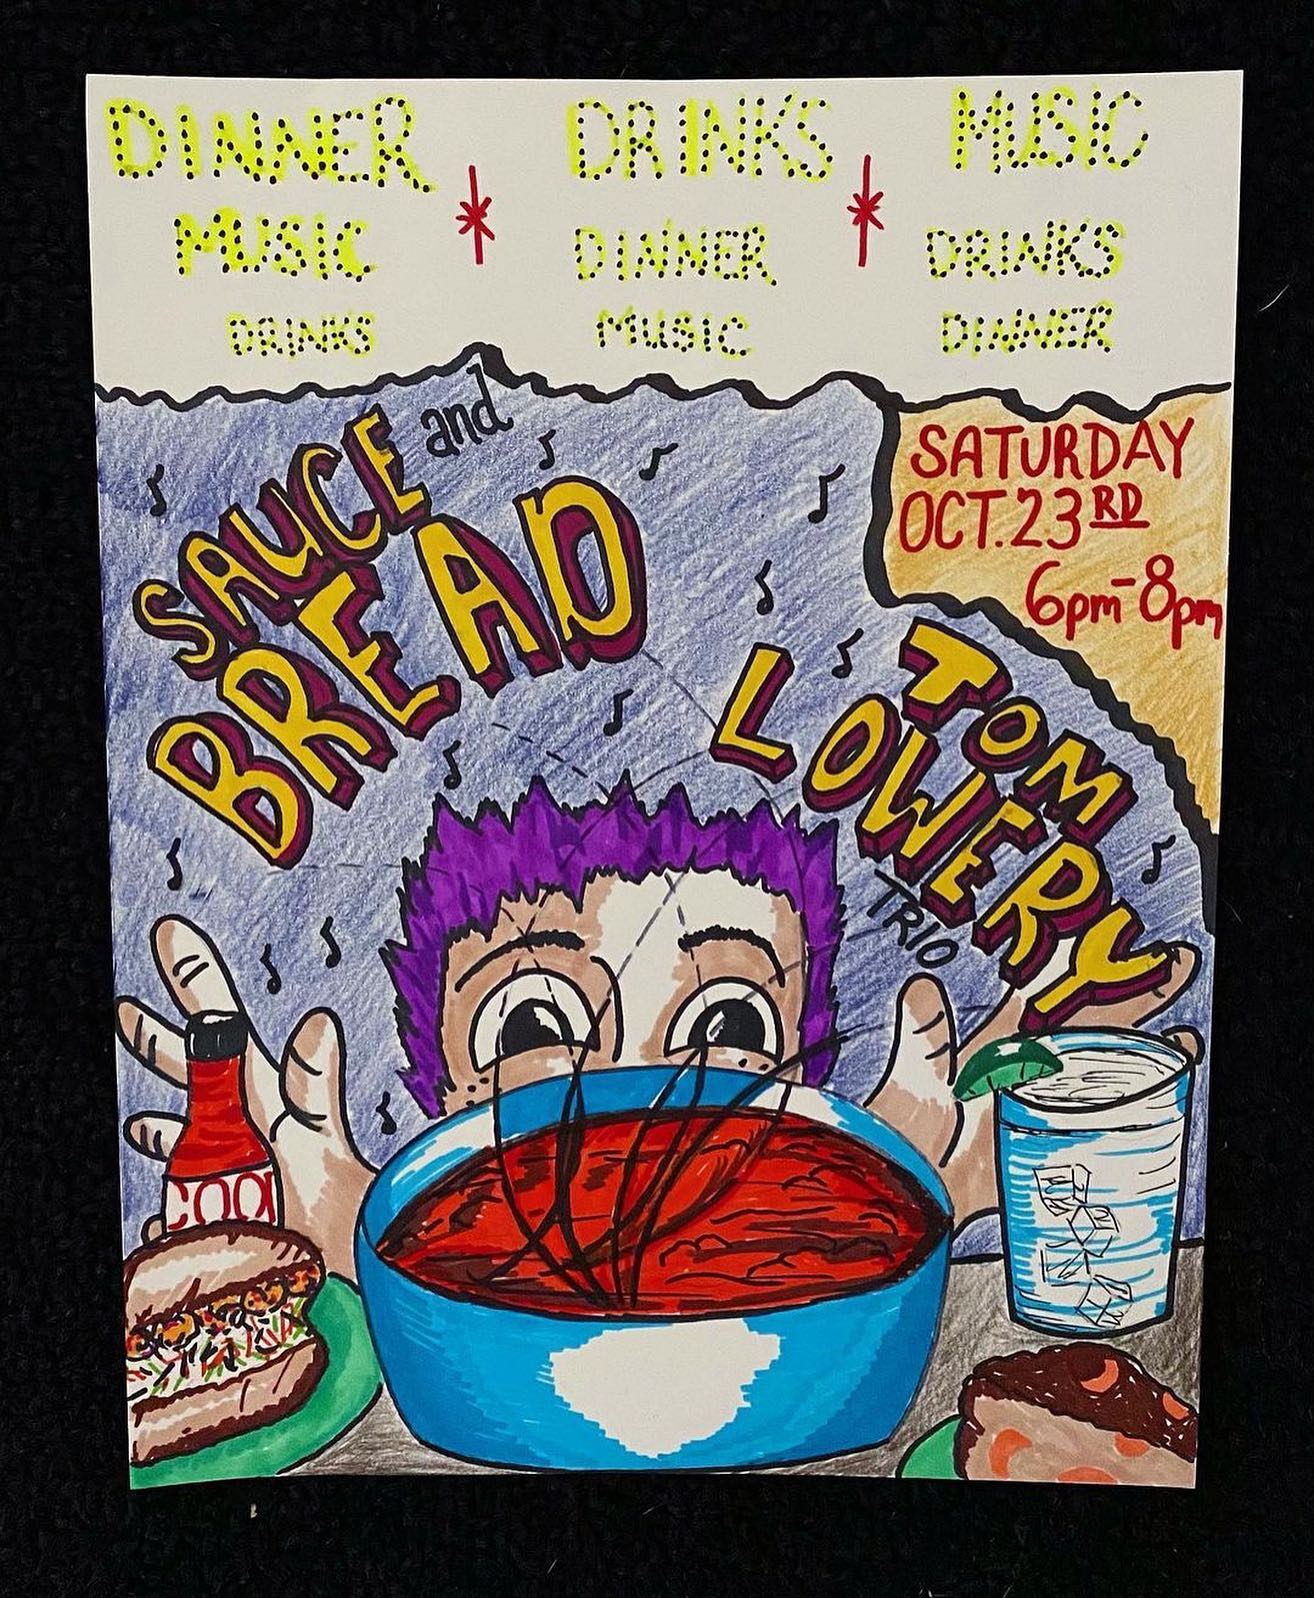 DINNER
MUSIC
DRINKS
DRINKS
DINNER
MUSIC
MUSIC
DRINKS
DINNER
SAUCE and
BREAD
SATURDAY
OCT. 23RD
6pm-8pm
TOM
LOWERY
TRIO
COOL